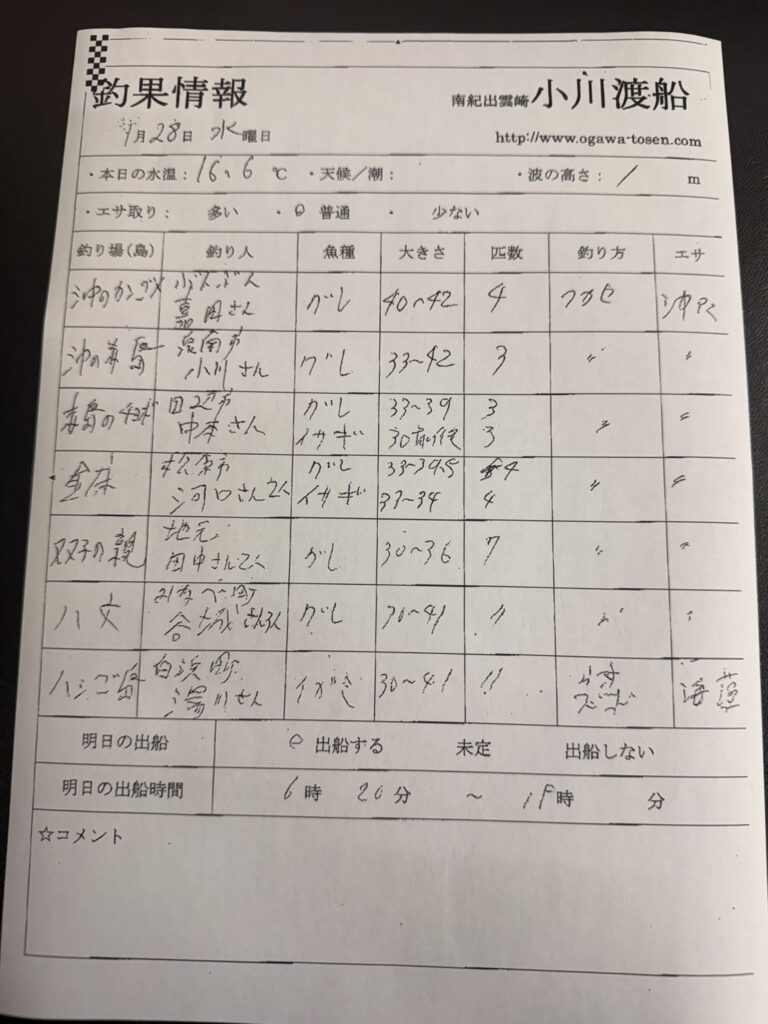 釣果情報
南紀出雲崎 小川渡船
月28日 水曜日
http://www.ogawa-tosen.com
・本日の水温：16.6 ℃ ・天候／潮： ・波の高さ： 1 m
・エサ取り： 多い ・ 普通 ・ 少ない
釣り場(島) 釣り人 魚種 大きさ 匹数 釣り方 エサ
ぶんぶん
沖のカンヅメ 嘉田さん グレ 40〜42 4 フカセ 沖アミ
泉南市
沖の赤島 小川さん グレ 33〜42 3 〃 〃
田辺市 グレ 33〜39 3
赤島の 中本さん イサギ 30前後 3 〃 〃
松原市 グレ 33〜34.5 4
河口さん2人 イサギ 33〜34 4 〃 〃
地元
双子の親 田中さん2人 グレ 30〜36 7 〃 〃
みなべ町
グレ 30〜41 11 〃 〃
白浜町
ハシゴ島 湯川さん イガミ 30〜41 11 海藻
明日の出船 出船する 未定 出船しない
明日の出船時間 6時 20分 〜 時 分
☆コメント